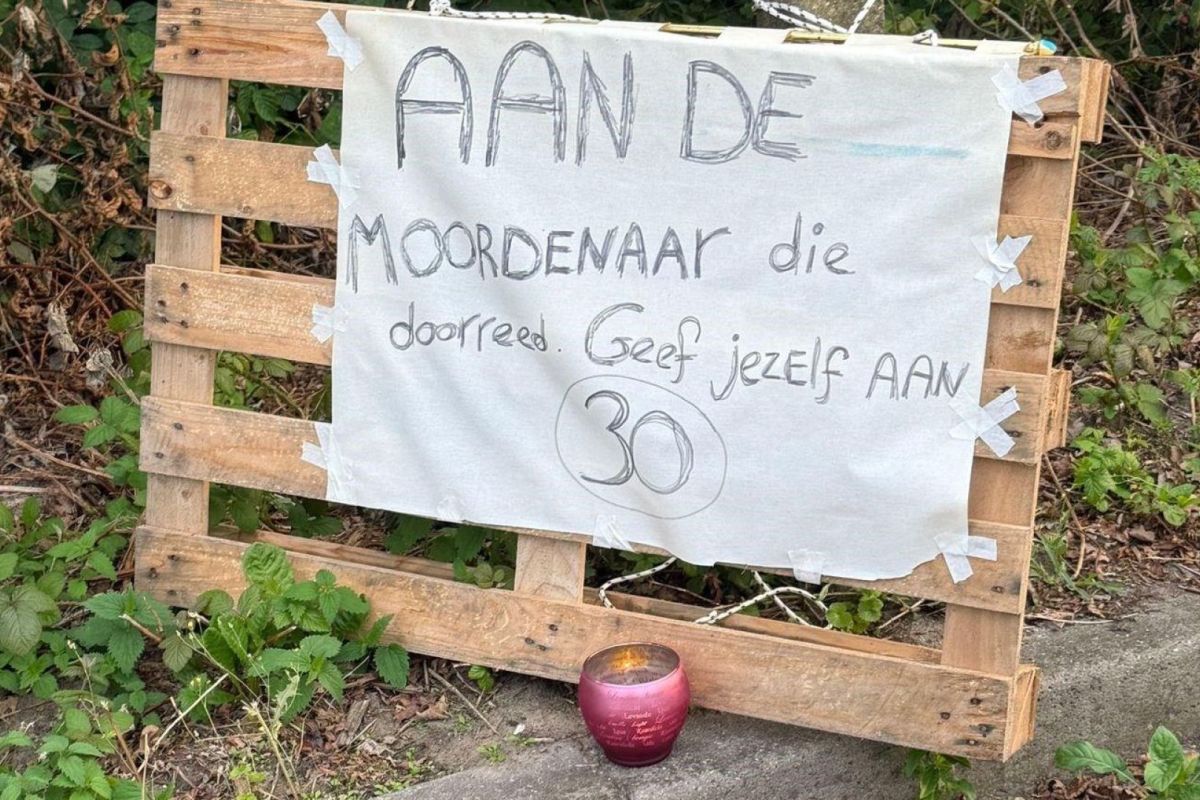 AAN DE
MOORDENAAR die
doorreed. Geef jezelf AAN
30